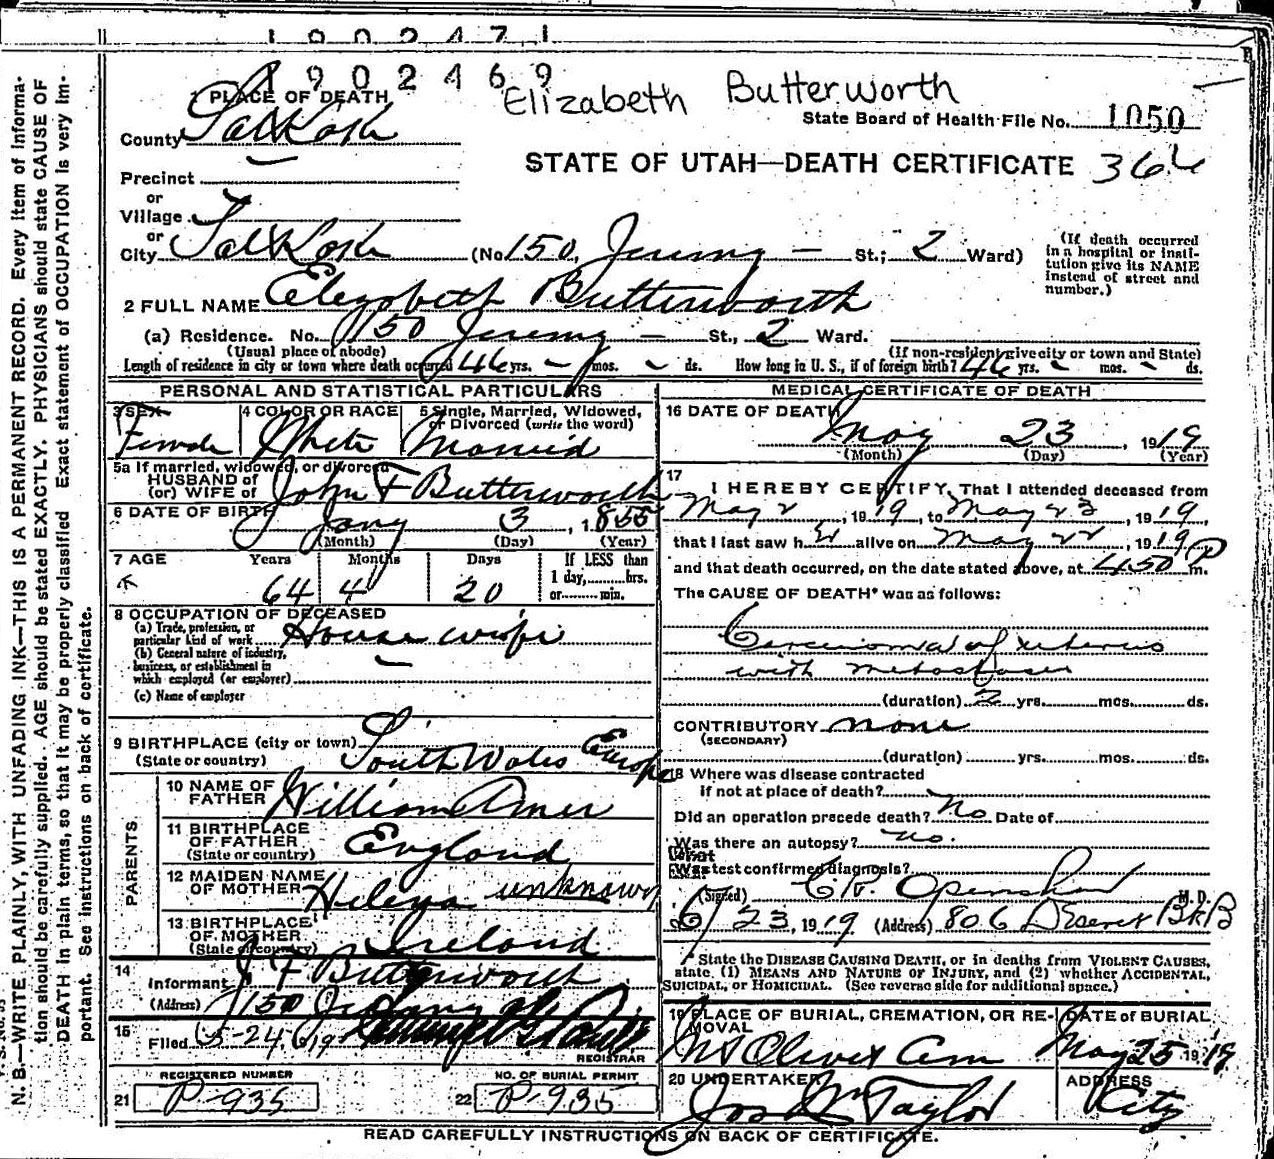 1902471
1902469
Elizabeth Butterworth
1 PLACE OF DEATH
State Board of Health File No. 1050
County Salt Lake
STATE OF UTAH—DEATH CERTIFICATE 364
Precinct
or
Village
or
City Salt Lake (No. 150, Jeremy — St.; 2 Ward)
(If death occurred in a hospital or institution give its NAME instead of street and number.)
2 FULL NAME Elizabeth Butterworth
(a) Residence. No. 150 Jeremy — St., 2 Ward.
(Usual place of abode) (If non-resident give city or town and State)
Length of residence in city or town where death occurred 46 yrs. — mos. — ds. How long in U. S., if of foreign birth? 46 yrs. — mos. — ds.
PERSONAL AND STATISTICAL PARTICULARS
3 SEX Female
4 COLOR OR RACE White
5 Single, Married, Widowed, or Divorced (write the word) Married
5a If married, widowed, or divorced
HUSBAND of
(or) WIFE of John F Butterworth
6 DATE OF BIRTH Jany 3, 1855
(Month) (Day) (Year)
7 AGE Years Months Days If LESS than
1 day,........hrs.
or........min.
64 4 20
8 OCCUPATION OF DECEASED
(a) Trade, profession, or
particular kind of work House wife
(b) General nature of industry,
business, or establishment in
which employed (or employer) —
(c) Name of employer
9 BIRTHPLACE (city or town)
(State or country) South Wales Europe
PARENTS
10 NAME OF FATHER William Amer
11 BIRTHPLACE OF FATHER
(State or country) England
12 MAIDEN NAME OF MOTHER Helena unknown
13 BIRTHPLACE OF MOTHER
(State or country) Ireland
14
Informant J F Butterworth
(Address) 150 Jeremy st
15
Filed 5-24, 1919
REGISTRAR
REGISTERED NUMBER
21 P-935
NO. OF BURIAL PERMIT
22 P-935
MEDICAL CERTIFICATE OF DEATH
16 DATE OF DEATH
May 23, 1919
(Month) (Day) (Year)
17
I HEREBY CERTIFY, That I attended deceased from
May 2, 1919, to May 23, 1919,
that I last saw her alive on May 22, 1919
and that death occurred, on the date stated above, at 4.50 P m.
The CAUSE OF DEATH* was as follows:
Carcinoma of uterus
with metastases
(duration) 2 yrs. mos. ds.
CONTRIBUTORY none
(SECONDARY)
(duration) yrs. mos. ds.
18 Where was disease contracted
if not at place of death?
Did an operation precede death? No Date of
Was there an autopsy? no.
What test confirmed diagnosis?
(Signed) C. W. Openshaw M. D.
5/23, 1919 (Address) 806 Deseret Bk B
* State the DISEASE CAUSING DEATH, or in deaths from VIOLENT CAUSES,
state, (1) MEANS AND NATURE OF INJURY, and (2) whether ACCIDENTAL,
SUICIDAL, or HOMICIDAL. (See reverse side for additional space.)
19 PLACE OF BURIAL, CREMATION, OR REMOVAL
Mt Olivet Cem
DATE of BURIAL
May 25 1919
20 UNDERTAKER
Jos Wm Taylor
ADDRESS
City
READ CAREFULLY INSTRUCTIONS ON BACK OF CERTIFICATE.
N. B.—WRITE PLAINLY, WITH UNFADING INK—THIS IS A PERMANENT RECORD. Every item of information should be carefully supplied. AGE should be stated EXACTLY. PHYSICIANS should state CAUSE OF DEATH in plain terms, so that it may be properly classified. Exact statement of OCCUPATION is very important. See instructions on back of certificate.